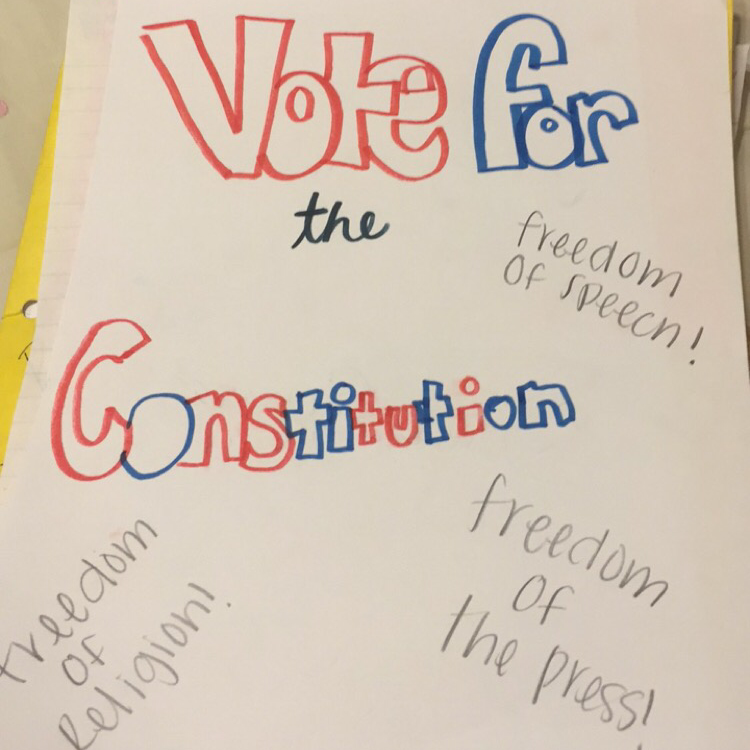 Vote for
the
freedom
of speech!
Constitution
freedom
of
religion!
freedom
of
the press!